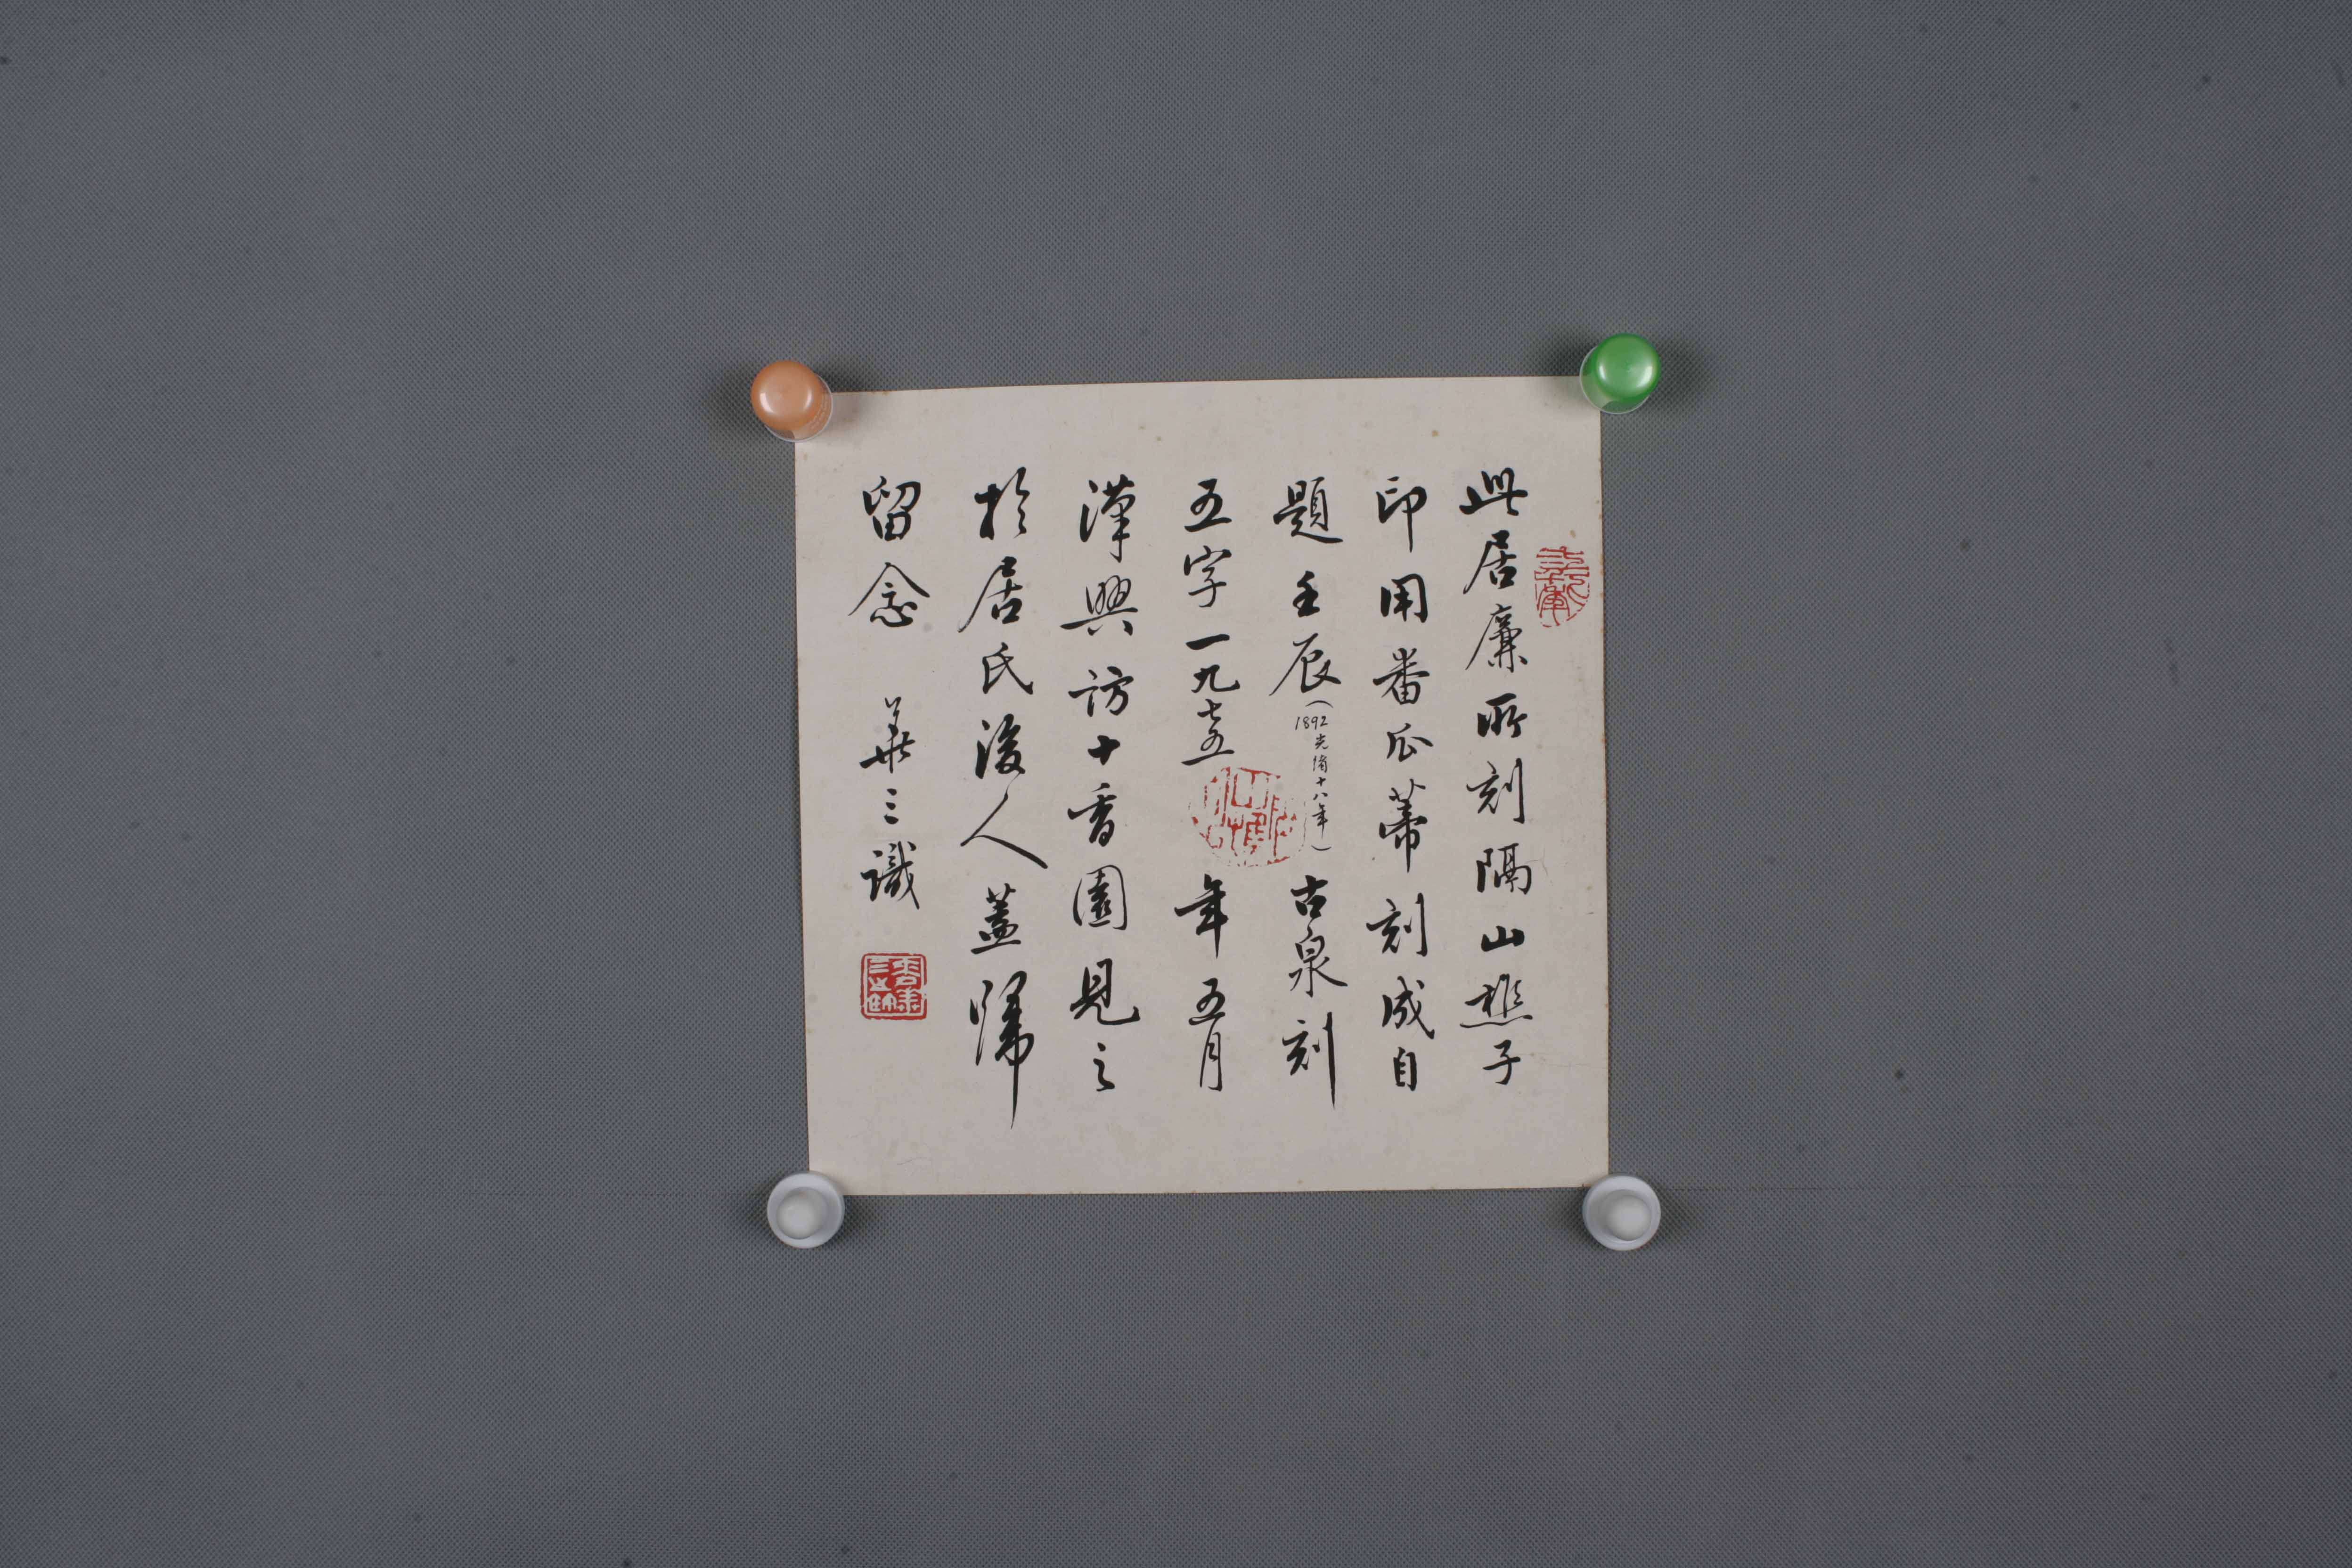 此居廉所刻隔山樵子
印用番瓜蒂刻成自
題壬辰（1892光緒十八年）古泉刻
五字一九七五年五月
漢興訪十香園見之
於居氏後人蓋歸
留念 華三識